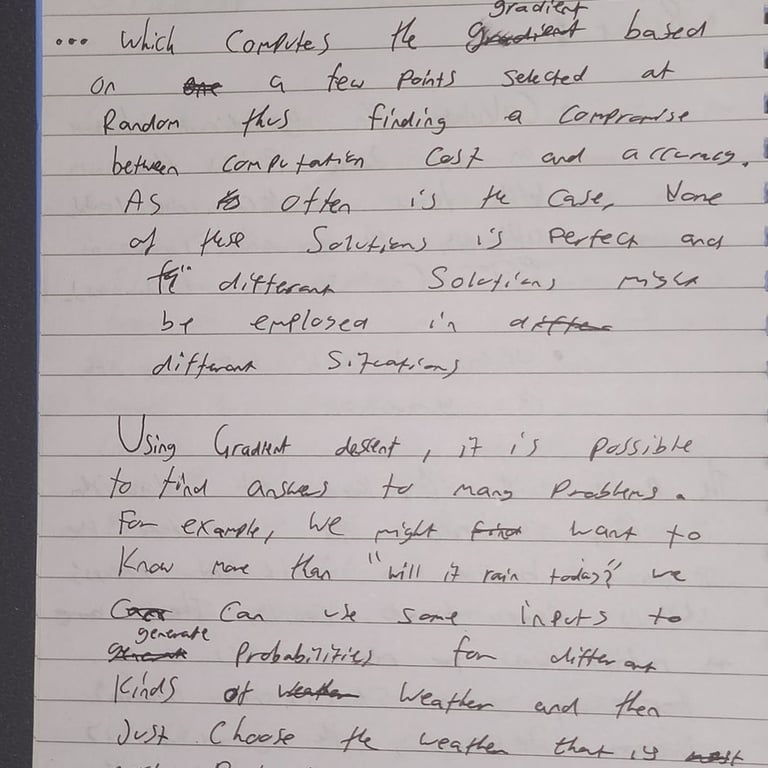 ... which computes the gradient based
on a few points selected at
Random thus finding a compromise
between computation cost and accuracy.
As often is the case, None
of these Solutions is perfect and
different Solutions might
be employed in
different Situations
Using Gradient descent, it is possible
to find answers to many problems.
For example, we might want to
Know more than "will it rain today?" we
Can use some inputs to
generate probabilities for different
Kinds of weather and then
Just choose the weather that is